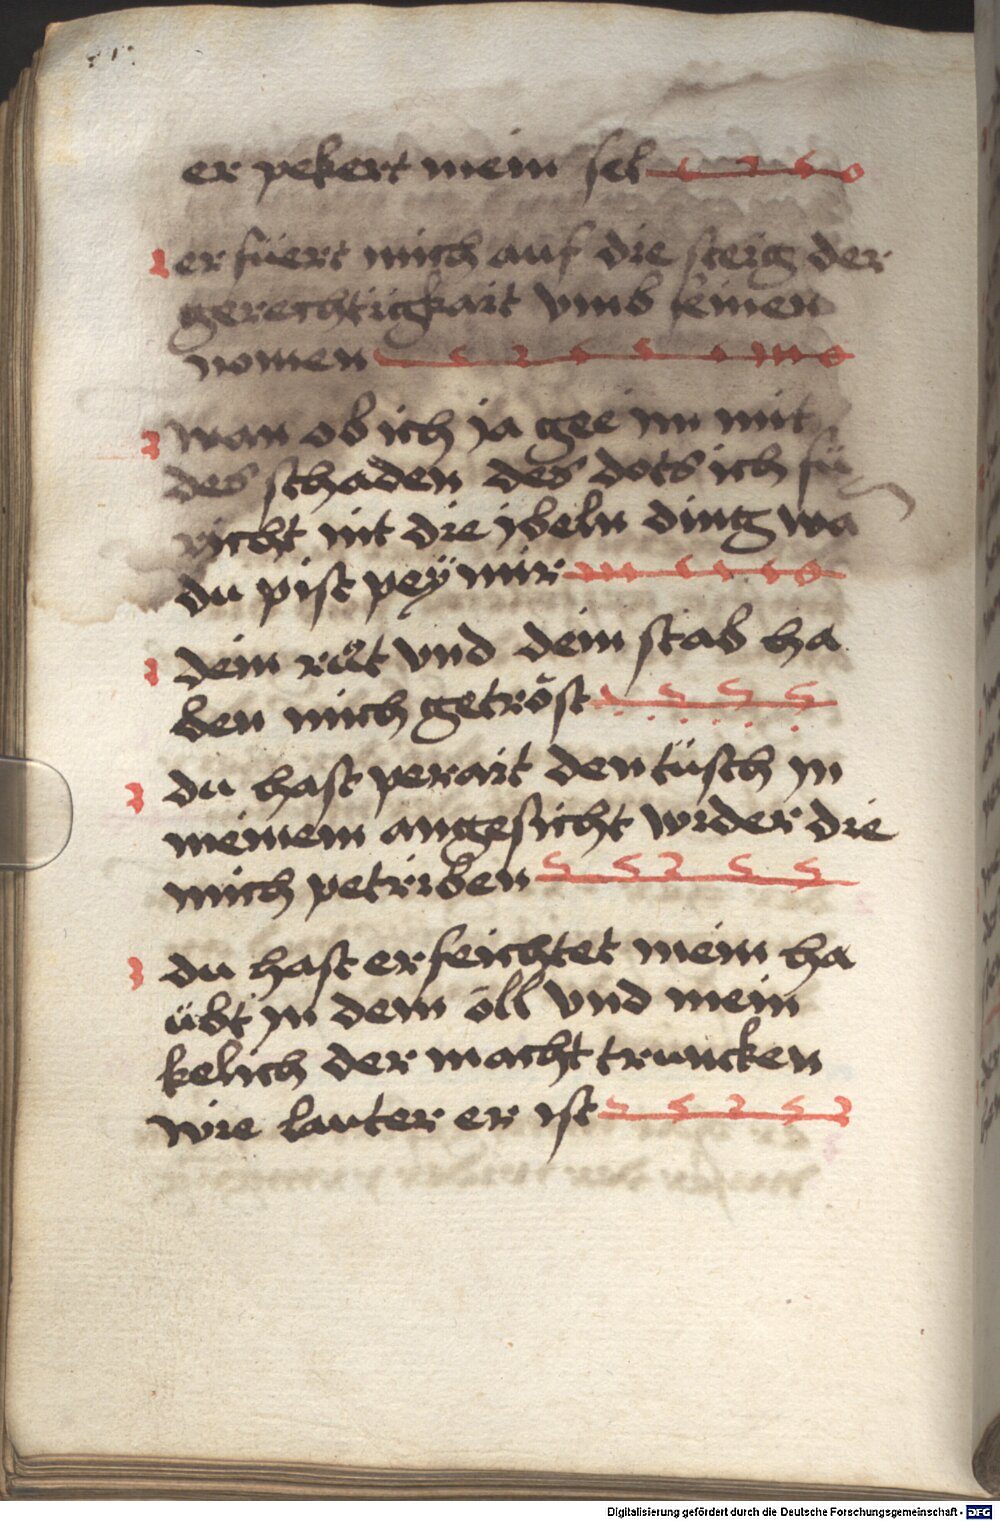 er pekert mein sel
er füert mich auf die steig der
gerechtigkait vmb seinen
nomen
wan ob ich ja gee im mit
des schaden des dots ich fü
richt nit die jbeln ding wa
du pist peÿ mir
dein ruͦt vnd dein stab ha
ben mich getröst
du hast perait den tüsch jn
meinem angesicht wider die
mich petriben
du hast erfeichtet mein ha
übt jn dem öll vnd mein
kelich der macht truncken
wie lauter er ist
Digitalisierung gefördert durch die Deutsche Forschungsgemeinschaft - DFG